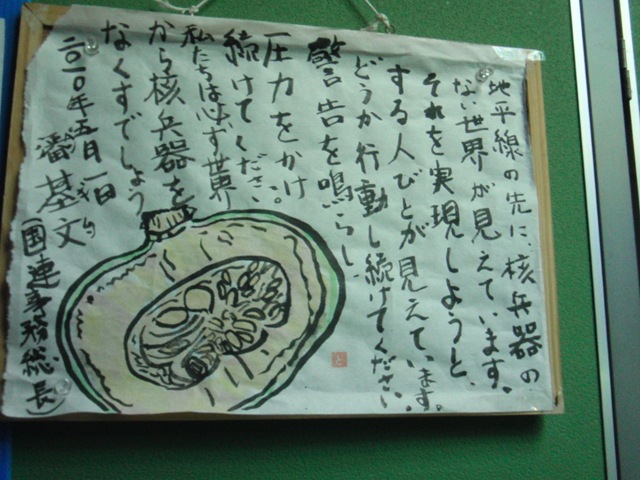 地平線の先に、核兵器の
ない世界が見えています。
それを実現しようと、
する人びとが見えています。
どうか行動し続けてください。
警告を鳴らし、
圧力をかけ
続けてください。
私たちは必ず世界
から核兵器を
なくすでしょう
二〇一〇年五月一日
潘基文
(国連事務総長)
と